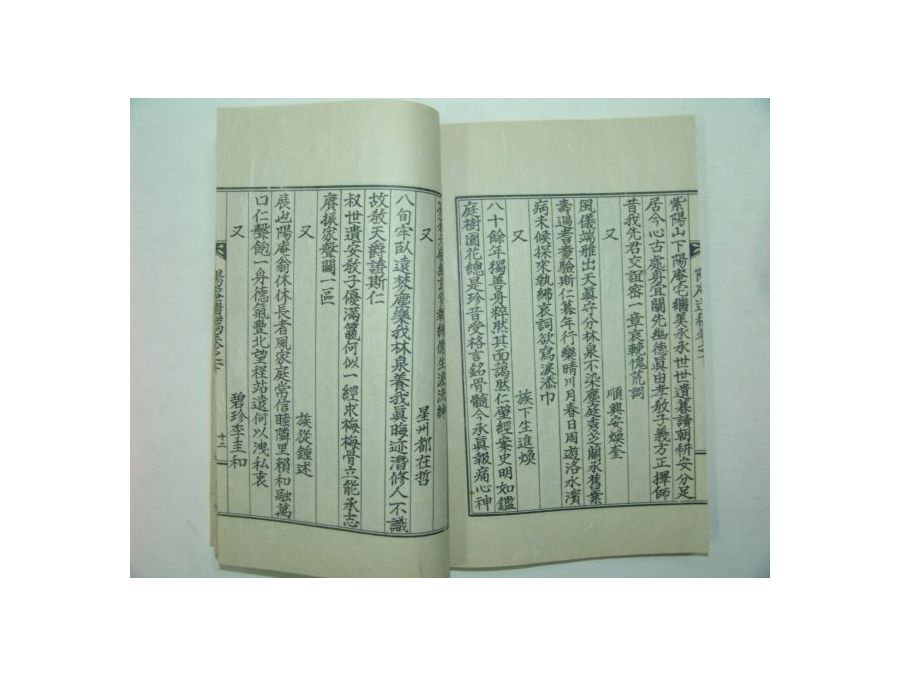 紫陽山下陽庵宅繼美承承世世遺暮讀朝耕安分足
居今心古處身宜蘭先幽德眞由孝教子義方正擇師
昔我先君交誼密一章哀輓愧荒詞
又 順興安煥奎
風儀端雅出天眞守分林泉不染塵庭秀芝蘭承舊業
壽過耆耋驗斯仁暮年行樂晴川月春日周遊洛水濱
病未候探來執紼哀詞欲寫淚添巾
又 族下生進煥
八十餘年獨善身粹然其面藹然仁壁經案史明如鑑
庭樹園花總是珍昔受格言銘骨髓今承眞報痛心神
又 星州都在哲
八旬牢臥遠棼塵藥我林泉養我眞晦迹潛修人不識
故教天爵證斯仁
叔世遺安教子優滿籝何似一經求梅梅骨立能承志
賡振家聲闢一區
又 族從鍾述
展也陽庵翁休休長者風家庭常信睦隣里賴和融萬
口仁聲飽一身德氣豐北望程站遠何以洩私衷
又 碧珍李圭和
十二